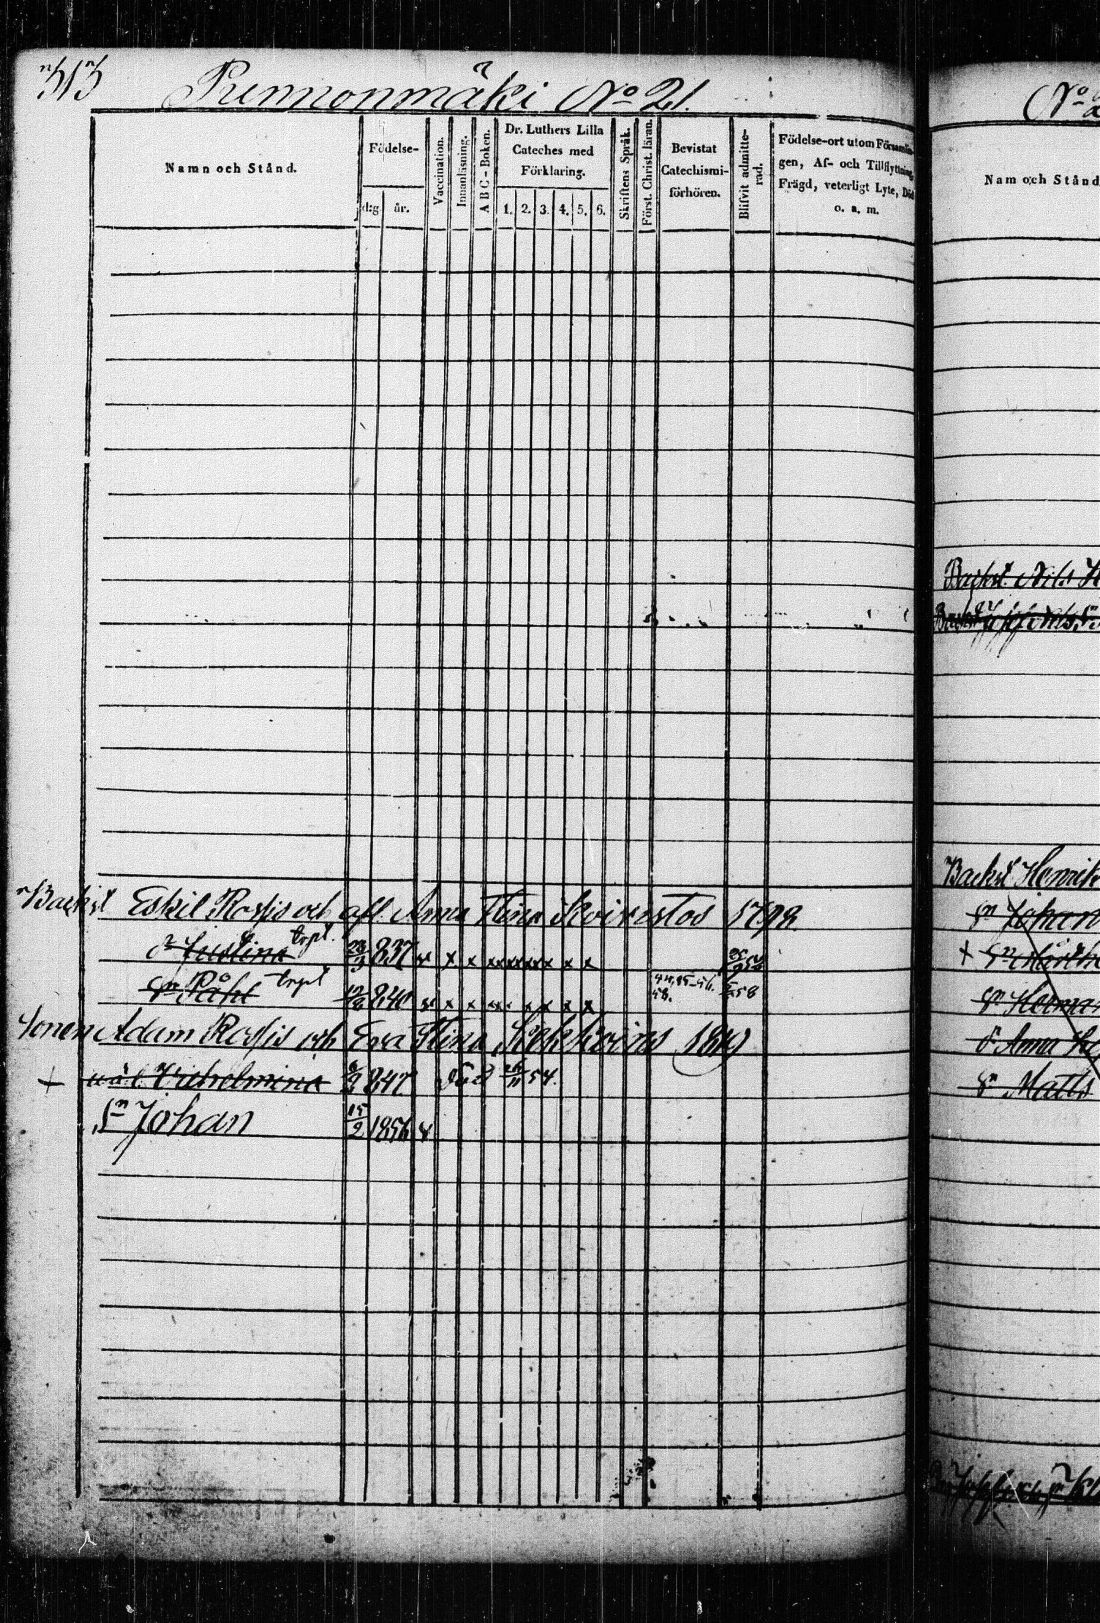 313 Punnonmäki No 21.
Namn och Stånd.
Födelse-
dag
år.
Vaccination.
Innanläsning.
A B C - Boken.
Dr. Luthers Lilla
Cateches med
Förklaring.
1. 2. 3. 4. 5. 6.
Skriftens Språk.
Först. Christ. läran.
Bevistat
Catechismi-
förhören.
Blifvit admitte-
rad.
Födelse-ort utom Församlin-
gen, Af- och Tillflyttning,
Frägd, veterligt Lyte, Död
o. s. m.
Backst Eskil Rossis och afl. Anna Stina Koivistos 1798
Justina 23/3 837 x x x x x x x x x
Sn Påhl 12/2 840 x x x x x x x x 44, 45-56. 58. 58
Sonen Adam Rossis och Eva Stina 1849
+ Wilhelmina 2/2 847 död 54.
Sn Johan 15/2 1856 x
No
Namn och Stånd
Backst. Nils
Backst Henrik
Sn Johan
+
Sn Herman
dr Anna
Sn Matts